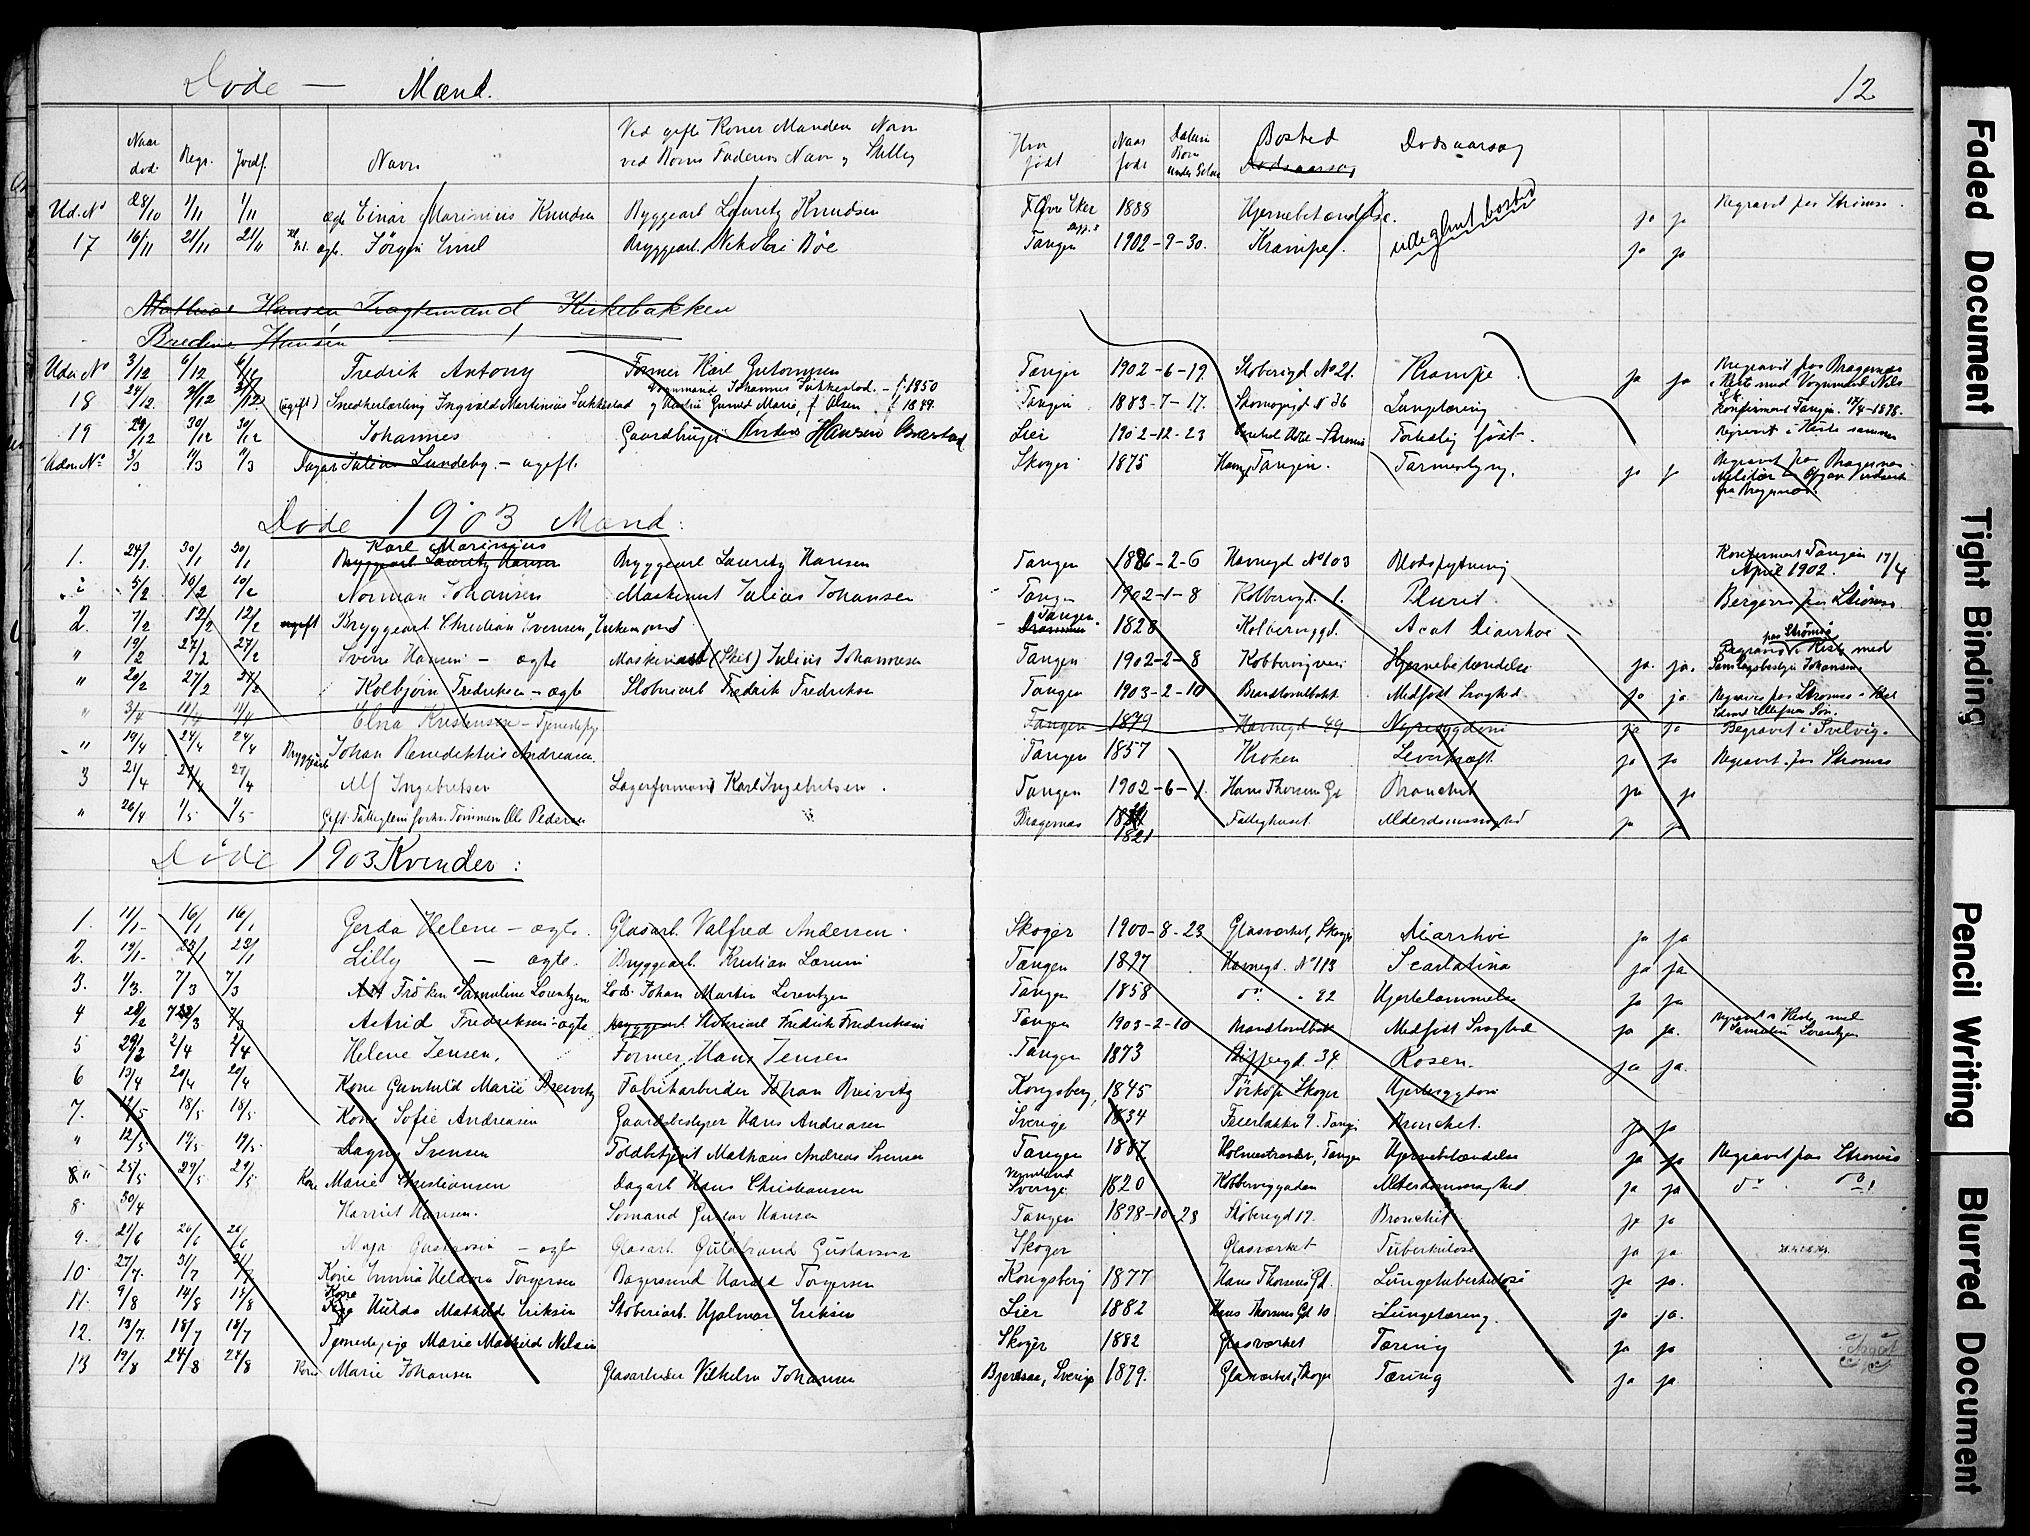 Døde — Mænd.
12
Naar død
Begr.
Jordf.
Navn
Ved gifte Koner Mandens Navn
ved Børns Faderens Navn og Stilling
Hvor født
Naar føde
Bosted
Dødsaarsag
Ud. No 28/10 1/11 1/11 ægte Einar Marinius Knudsen Byggearb. Lauritz Knudsen Øvre Eker 1888 Hjernebetændelse. ja ja Begravet paa Strømsø.
17 16/11 21/11 21/11 ægte Jørgen Emil Bryggearb. Nikolai Bøe Tangen 1902-9-30. Krampe ja ja
Mathias Hansen Fragtemand Kirkebakken
Bredine Hansen
Uden No 3/12 6/12 6/12 Fredrik Antony Former Karl Gutormsen Tangen 1902-6-19. Støberigd No 21. Krampe ja ja Begravet paa Bragernes
i Kiste med Vognmand Nils
18 24/12 31/12 31/12 (ugift) Snedkerlærling Ingvald Martinius Sukkestad Vognmand Johannes Sukkestad. f. 1850
og Hustru Gunild Marie, f. Olsen f 1849. Tangen 1883-7-17. No 36 Lungetæring Konfirmeret Tangen. 1898.
19 29/12 30/12 30/12 Johannes Gaardbruger Anders Hansen Lier 1902-12-23 Fortidlig født. Begravet i Kiste sammen
Uden No 3/3 11/3 11/3 Dagarb. Julius Lundeby. — ugift. Skoger 1875 Tangen. Tarmeslyng. ja ja Begravet paa Bragernes
Døde 1903 Mænd:
1. 24/1 30/1 30/1 Karl Marinius
Bryggearb. Lauritz Hansen Byggearb Lauritz Hansen Tangen 1886-2-6 Havnegd No 103 Blodspytning Konfirmert Tangen 17/4
April 1902.
" 5/2 10/2 10/2 Norman Johansen Maskinist Julius Johansen Tangen 1902-1-8 Kobbervgd. 1. Plurit. Begraves paa Strømsø
2. 7/2 12/2 12/2 ugift Bryggearb Christian Svensen, Enkemand Tangen. Drammen 1828 Kobberviggd. Acut Diarrhoe
" 19/2 27/2 27/2 Sverre Hansen — ægte Maskinist (Skib) Julius Johannesen Tangen 1902-2-8 Kobbervigveien Hjernebetændelse ja. ja. paa Strømsø
Begraves i Kiste med
" 20/2 27/2 27/2 Kolbjørn Fredriksen — ægte Støberiarb Fredrik Fredriksen Tangen 1903-2-10 Medfødt Svaghed ja ja Begraves paa Strømsø i Kiste
" 3/4 11/4 11/4 Elna Kristensen — Tjenestepige Tangen 1879 Havnegd 49 Nyresygdom ja ja Begravet i Svelvig.
" 19/4 24/4 24/4 Bryggearb Johan Benediktus Andreasen. Tangen 1857 Kroken Leverkræft. ja ja Begravet paa Strømsø
3 21/4 27/4 27/4 Alf Ingebretsen Lagerformand Karl Ingebretsen. Tangen 1902-6-1. Hans Thorsen Gd Bronchit ja ja
" 26/4 1/5 1/5 Gift. Fattiglem forhv. Tømmerm Ole Pedersen Bragernes 1821 Fattighuset Alderdomssvaghed ja ja
Døde 1903 Kvinder:
1. 11/1 16/1 16/1 Gerda Helene — ægte. Glasarb. Valfred Andersen. Skoger 1900-8-23 Glasværket, Skoger Diarrhoe ja ja
2. 19/1 23/1 23/1 Lilly — ægte. Bryggearb. Kristian Larsen Tangen 1897 Havnegd. No 113 Scarlatina ja ja
3. 1/3. 7/3 7/3 Frøken Samuline Lorentzen Lods. Johan Martin Lorentzen Tangen 1858 do. " 92 Hjertelammelse ja ja
4 28/2 7/3 7/3 Astrid Fredriksen — ægte Byggearb Støberiarb Fredrik Fredriksen Tangen 1903-2-10 Medfødt Svaghed ja ja. Begravet i Kiste med
Samuline Lorentzen
5 29/2 2/4 2/4 Helene Jensen. Former Hans Jensen Tangen 1873 34. Rosen. ja ja.
6 13/4 20/4 20/4 Kone Gunhild Marie Breivitz Fabrikarbeider Johan Breivitz Kongsberg, 1845 Skoger Hjertesygdom
7. 12/5 18/5 18/5 Kone Sofie Andreasen Gaardsbestyrer Hans Andreasen Sverige 1834 Feierbakken 9. Tangen Bronchit. ja ja
" 12/5 19/5 19/5 Dagny Svensen Toldbetjent Mathæus Andreas Svensen Tangen 1887 Holmestrandsv., Tangen Hjernebetændelse ja ja Begravet paa Strømsø
" 25/5 29/5 29/5 Kone Marie Christiansen Dagarb Hans Christiansen Sverige 1820 Kobberviggaden Alderdomssvaghed. ja ja do do
8 30/4 Harriet Hansen. Sømand Gustav Hansen Tangen 1898-10-28 Støberigd 17. Bronchit ja ja
9. 21/6 26/6 26/6 Maja Gustavsen — ægte Glasarb. Guldbrand Gustavsen Skoger Glasværket Tuberkulose ja ja.
10. 27/7. 31/7 31/7 Kone Emma Heldora Torgersen Bagersvend Harald Torgersen Kongsberg 1877 Hans Thorsens Gd. Lungetuberkulose ja ja.
11. 9/8 14/8 15/8 Kone Hulda Mathild Eriksen Støberiarb. Hjalmar Eriksen Lier 1882 Hans Thorsens Gd 10 Lungetæring. ja ja.
12. 13/7. 18/7 18/7 Tjenestepige Marie Mathild Nilsen Skoger 1882 Glasværket Tæring ja ja
13 19/8 24/8 24/8 Kone Marie Johansen Glasarbeider Vilhelm Johansen Sverige 1879. Glasværket, Skoger Tæring ja ja.
Faded Document
Tight Binding
Pencil Writing
Blurred Document